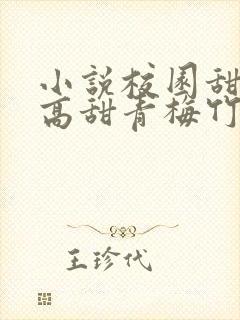 小說校園甜
高甜青梅竹
王珍代